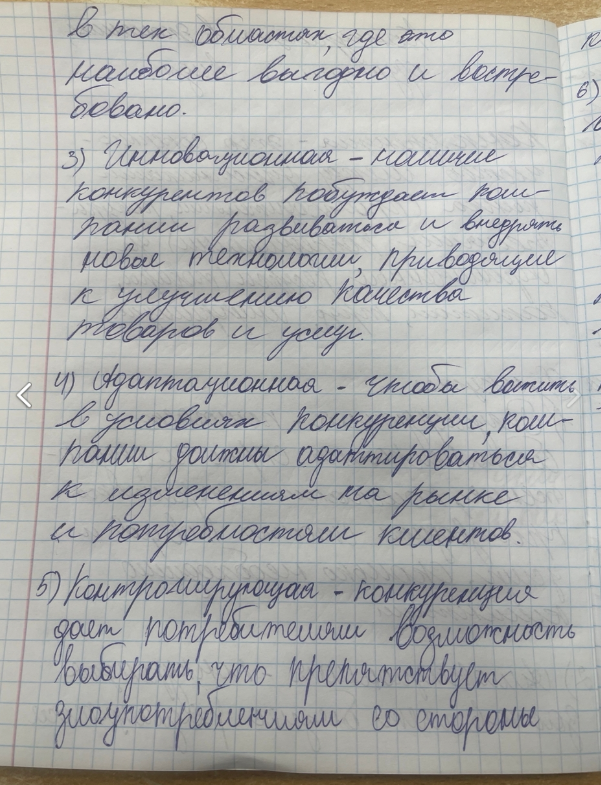 в тех областях, где это
наиболее выгодно и востре-
бовано.
3) Инновационная - наличие
конкурентов побуждает ком-
пании развиваться и внедрять
новые технологии, приводящие
к улучшению качества
товаров и услуг.
4) Адаптационная - чтобы выжить
в условиях конкуренции, ком-
пании должны адаптироваться
к изменениям на рынке
и потребностям клиентов.
5) Контролирующая - конкуренция
дает потребителям возможность
выбирать, что препятствует
злоупотреблениям со стороны
6)